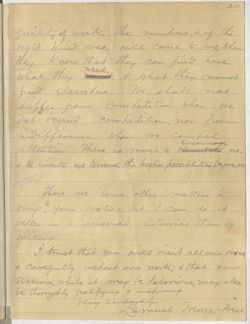 of work. The members, of the
right kind will come to us when
they know that they can find here
what they need, & what they cannot
find elsewhere. We shall not
suffer from competition when we
get beyond competition, nor from
indifference when we compel
attention. There is much to
& to incite us toward the higher possibilities before us.
There are some other matters to
bring to your notice, but I can do it
better in a personal interview than by
writing.
I trust that you will visit all our rooms
& carefully inspect our work; & that your
session, while it may be laborious, may also
be thoroughly gratifying & inspiring.
Very sincerely